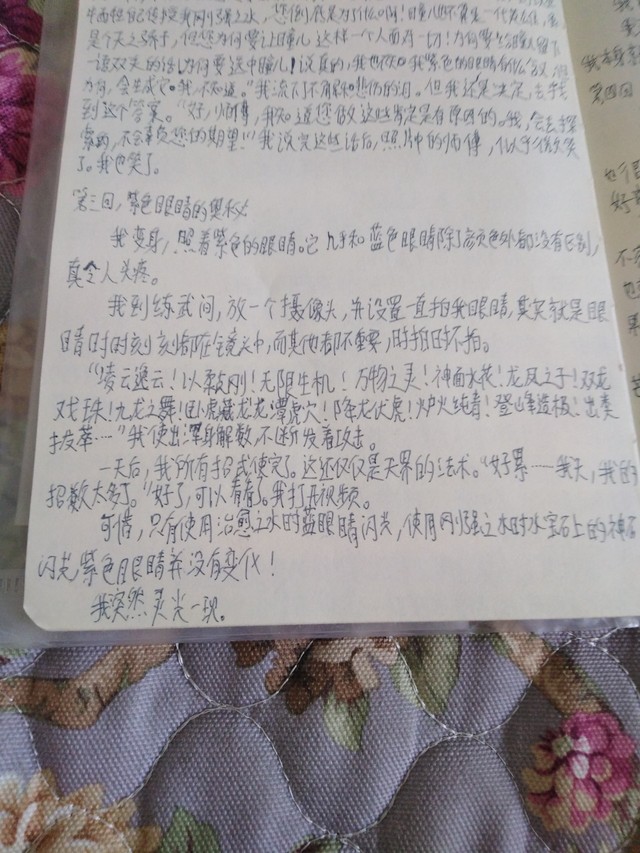 是个天之骄子，但您为何要让瞳儿这样一个人面对一切！为何要给瞳儿留下
一语双关的话！为何要选中瞳儿！说真的，我也不知我紫色的眼睛有什么含义，但
为何，会生成它。我不知道。"我流下了不解和悲伤的泪。但我还是决定，去寻
到这个答案。"好，师傅，我知道您做这些肯定是有原因的。我，会去探
索的，不会辜负您的期望！"我说完这些话后，照片中的师傅，似乎微笑
了。我也笑了。
第三回，紫色眼睛的奥秘
我变身，照着紫色的眼睛。它几乎和蓝色眼睛除了颜色外都没有区别，
真令人头疼。
我到练武间，放一个摄像头，并设置一直拍我眼睛，其实就是眼
睛时时刻刻都在镜头中，而其他都不重要，时拍时不拍。
"凌云逐云！以柔克刚！无限生机！万物之灵！神面水花！龙凤之子！双龙
戏珠！九龙之舞！卧虎藏龙龙潭虎穴！降龙伏虎！炉火纯青！登峰造极！出类
拔萃……"我使出浑身解数，不断发着攻击。
一天后，我所有招式使完了。这还仅仅是天界的法术。"好累……我天，我的
招数太多了。""好了，可以看看。我打开视频。
可惜，只有使用治愈之水时蓝眼睛闪光，使用刚强之水时水宝石上的神石
闪光，紫色眼睛并没有变化！
我突然灵光一现。
第四回